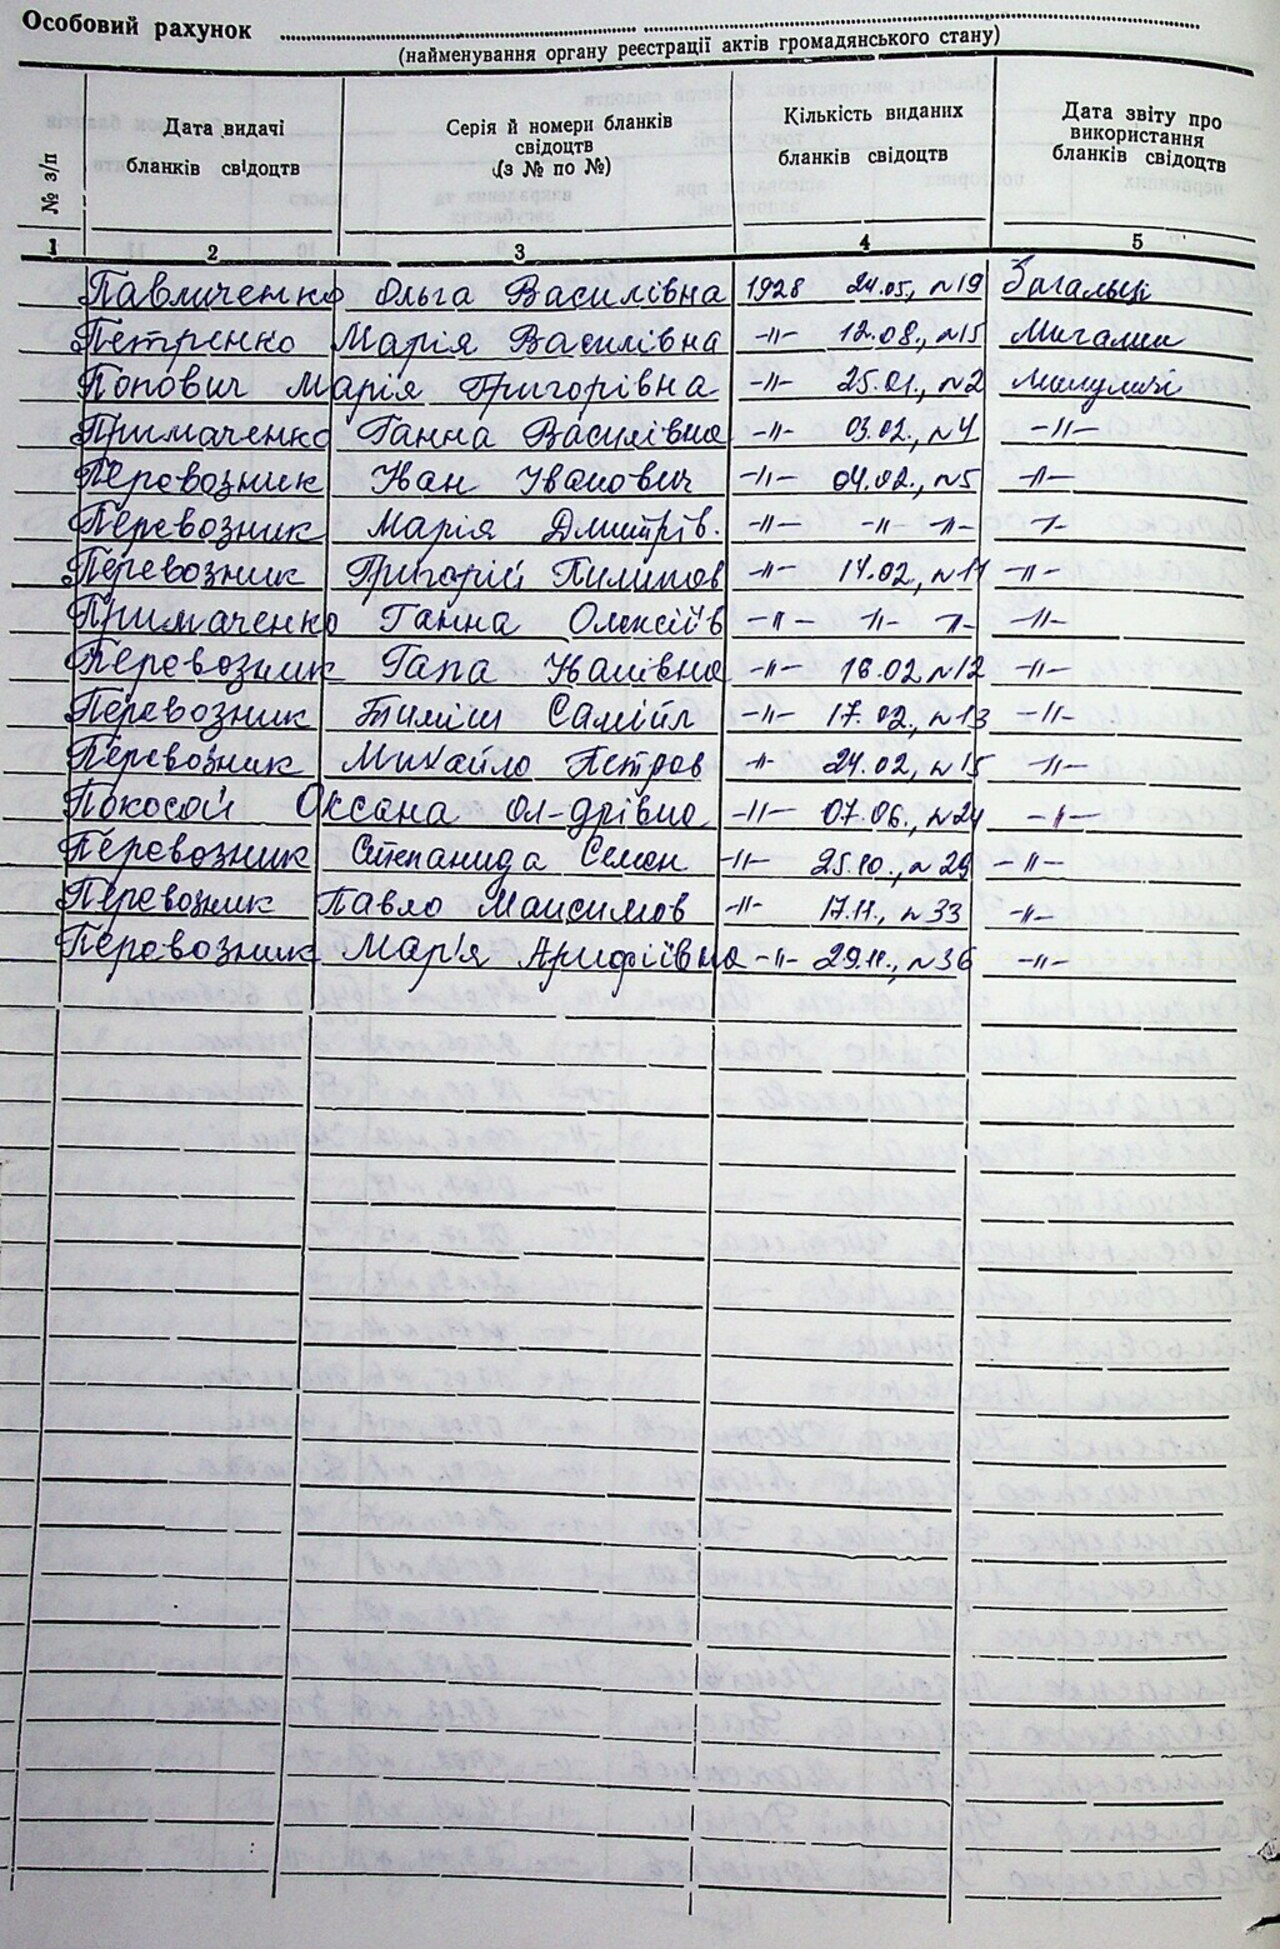 Особовий рахунок
(найменування органу реєстрації актів громадянського стану)
№ з/п
Дата видачі бланків свідоцтв
Серія й номери бланків свідоцтв (з № по №)
Кількість виданих бланків свідоцтв
Дата звіту про використання бланків свідоцтв
1 2 3 4 5
Павличенко Ольга Василівна 1928 24.05, №19 Загальці
Петренко Марія Василівна -"- 12.08., №15 Мигалки
Попович Марія Григорівна -"- 25.01., №2 Микуличі
Примаченко Ганна Василівна -"- 03.02., №4 -"-
Перевозник Іван Іванович -"- 04.02., №5 -"-
Перевозник Марія Дмитрів. -"- -"- -"- -"-
Перевозник Григорій Пилипов -"- 14.02, №11 -"-
Примаченко Ганна Олексіїв -"- -"- -"- -"-
Перевозник Гапа Іванівна -"- 16.02 №12 -"-
Перевозник Тиміш Самійл -"- 17.02, №13 -"-
Перевозник Михайло Петров -"- 24.02, №15 -"-
Покосой Оксана Ол-дрівна -"- 07.06., №24 -"-
Перевозник Степанида Семен -"- 25.10., №29 -"-
Перевозник Павло Максимов -"- 17.11., №33 -"-
Перевозник Мар'я -"- 29.11., №36 -"-